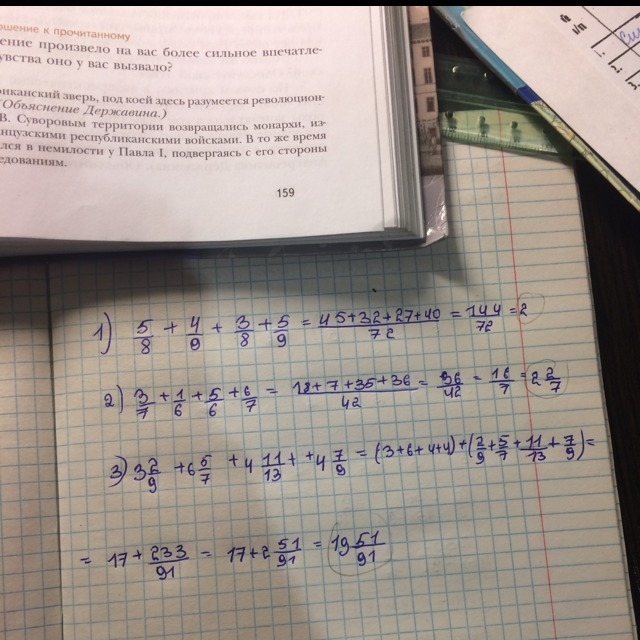 ошение к прочитанному
ение произвело на вас более сильное впечатле-
увства оно у вас вызвало?
риканский зверь, под коей здесь разумеется революцион-
(Объяснение Державина.)
В. Суворовым территории возвращались монархи, из-
нцузскими республиканскими войсками. В то же время
лся в немилости у Павла I, подвергаясь с его стороны
едованиям.
159
1) 5/8 + 4/9 + 3/8 + 5/9 = 45+32+27+40/72 = 144/72 = 2
2) 3/7 + 1/6 + 5/6 + 6/7 = 18+7+35+36/42 = 96/42 = 16/7 = 2 2/7
3) 3 2/9 + 6 5/7 + 4 11/13 + + 4 7/9 = (3+6+4+4) + (2/9 + 5/7 + 11/13 + 7/9) =
= 17 + 233/91 = 17 + 2 51/91 = 19 51/91